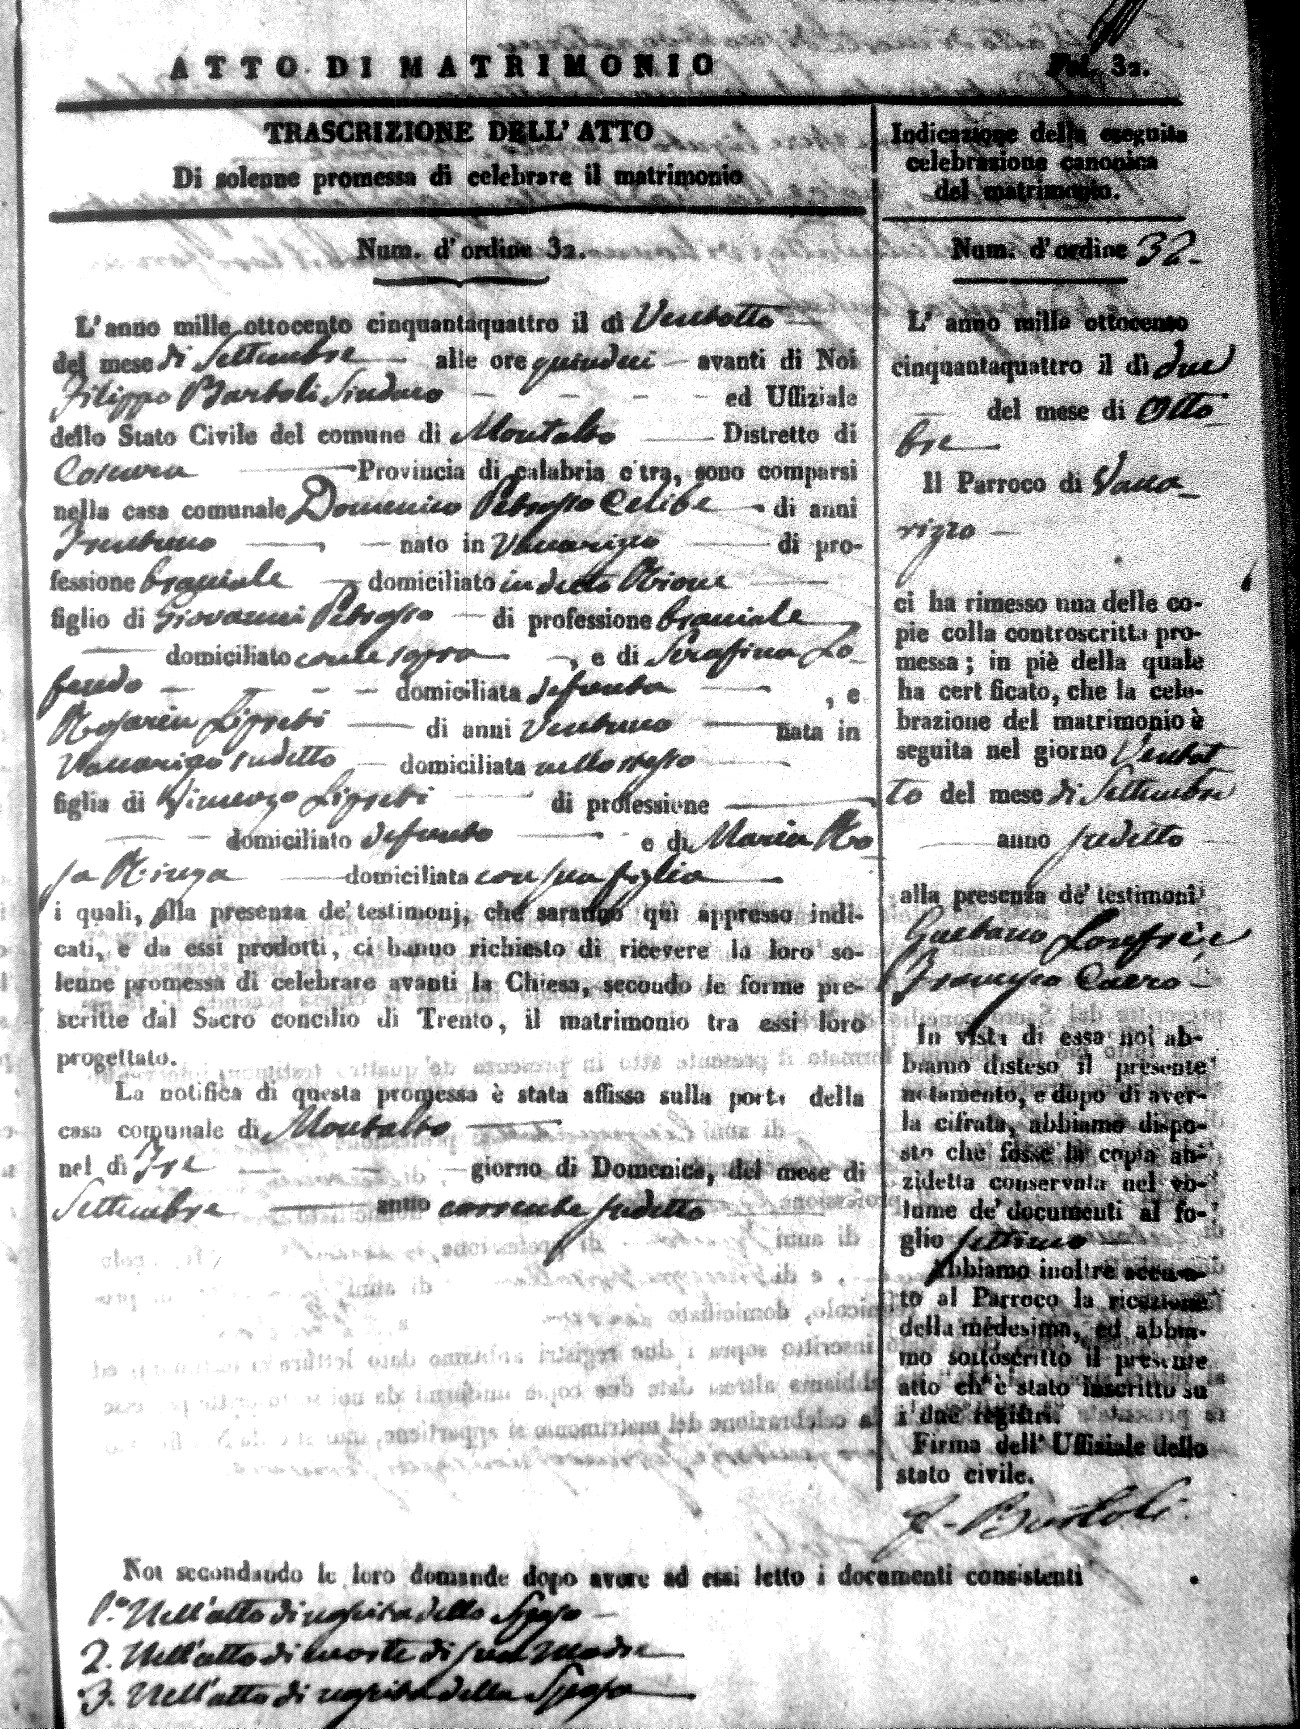 ATTO DI MATRIMONIO
Fol. 32.
TRASCRIZIONE DELL' ATTO
Di solenne promessa di celebrare il matrimonio
Num. d' ordine 32.
L' anno mille ottocento cinquantaquattro il dì Ventotto
del mese di Settembre alle ore quindici avanti di Noi
Filippo Bartoli Sindaco ed Uffiziale
dello Stato Civile del comune di Montalto Distretto di
Cosenza Provincia di calabria citra, sono comparsi
nella casa comunale Domenico Petrasso Celibe di anni
Trentuno nato in Vaccarizzo di pro-
fessione braciale domiciliato in detto Rione
figlio di Giovanni Petrasso di professione braciale
domiciliato come sopra , e di Serafina Lo-
feudo domiciliata defunta , e
Rosaria Lipreti di anni Ventuno nata in
Vaccarizzo sudetto domiciliata nello stesso
figlia di Vincenzo Lipreti di professione
domiciliato defunto e di Maria Ro
sa domiciliata con sua figlia
i quali, alla presenza de' testimonj, che saranno quì appresso indi-
cati, e da essi prodotti, ci hanno richiesto di ricevere la loro so-
lenne promessa di celebrare avanti la Chiesa, secondo le forme pre-
scritte dal Sacro concilio di Trento, il matrimonio tra essi loro
progettato.
La notifica di questa promessa è stata affissa sulla porta della
casa comunale di Montalto
nel dì Tre giorno di Domenica, del mese di
Settembre anno corrente sudetto
Indicazione della eseguita
celebrazione canonica
del matrimonio.
Num. d' ordine 32.
L' anno mille ottocento
cinquantaquattro il dì due
del mese di Otto
bre
Il Parroco di Vacca
rizzo
ci ha rimesso una delle co-
pie colla controscritta pro-
messa ; in piè della quale
ha certificato, che la cele-
brazione del matrimonio è
seguita nel giorno Ventot
to del mese di Settembre
anno sudetto
alla presenza de' testimoni
Gaetano
Francesco
In vista di essa noi ab-
biamo disteso il presente
notamento, e dopo di aver-
la cifrata, abbiamo dispo-
sto che fosse la copia an-
zidetta conservata nel vo-
lume de' documenti al fo-
glio settimo
Abbiamo inoltre accusa-
to al Parroco la ricezione
della medesima, ed abbia-
mo sottoscritto il presente
atto ch' è stato inscritto su
i due registri.
Firma dell' Uffiziale dello
stato civile.
F. Bartoli
Noi secondando le loro domande dopo avere ad essi letto i documenti consistenti
1.° Nell'atto di nascita dello Sposo
2. Nell'atto di morte di sua Madre
3. Nell'atto di nascita della Sposa